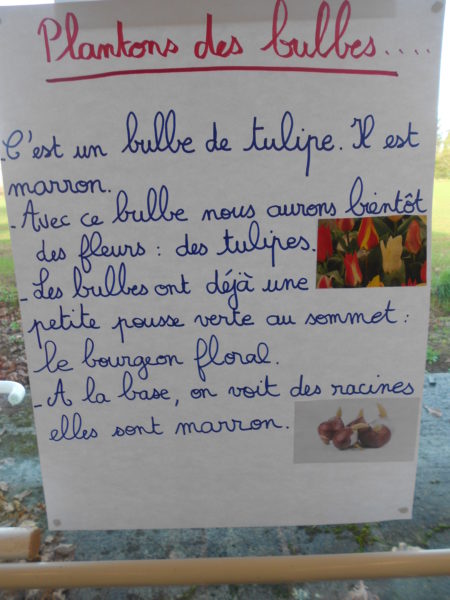 Plantons des bulbes....
- C'est un bulbe de tulipe. Il est
marron.
- Avec ce bulbe nous aurons bientôt
des fleurs : des tulipes.
- Les bulbes ont déjà une
petite pousse verte au sommet :
le bourgeon floral.
- A la base, on voit des racines
elles sont marron.